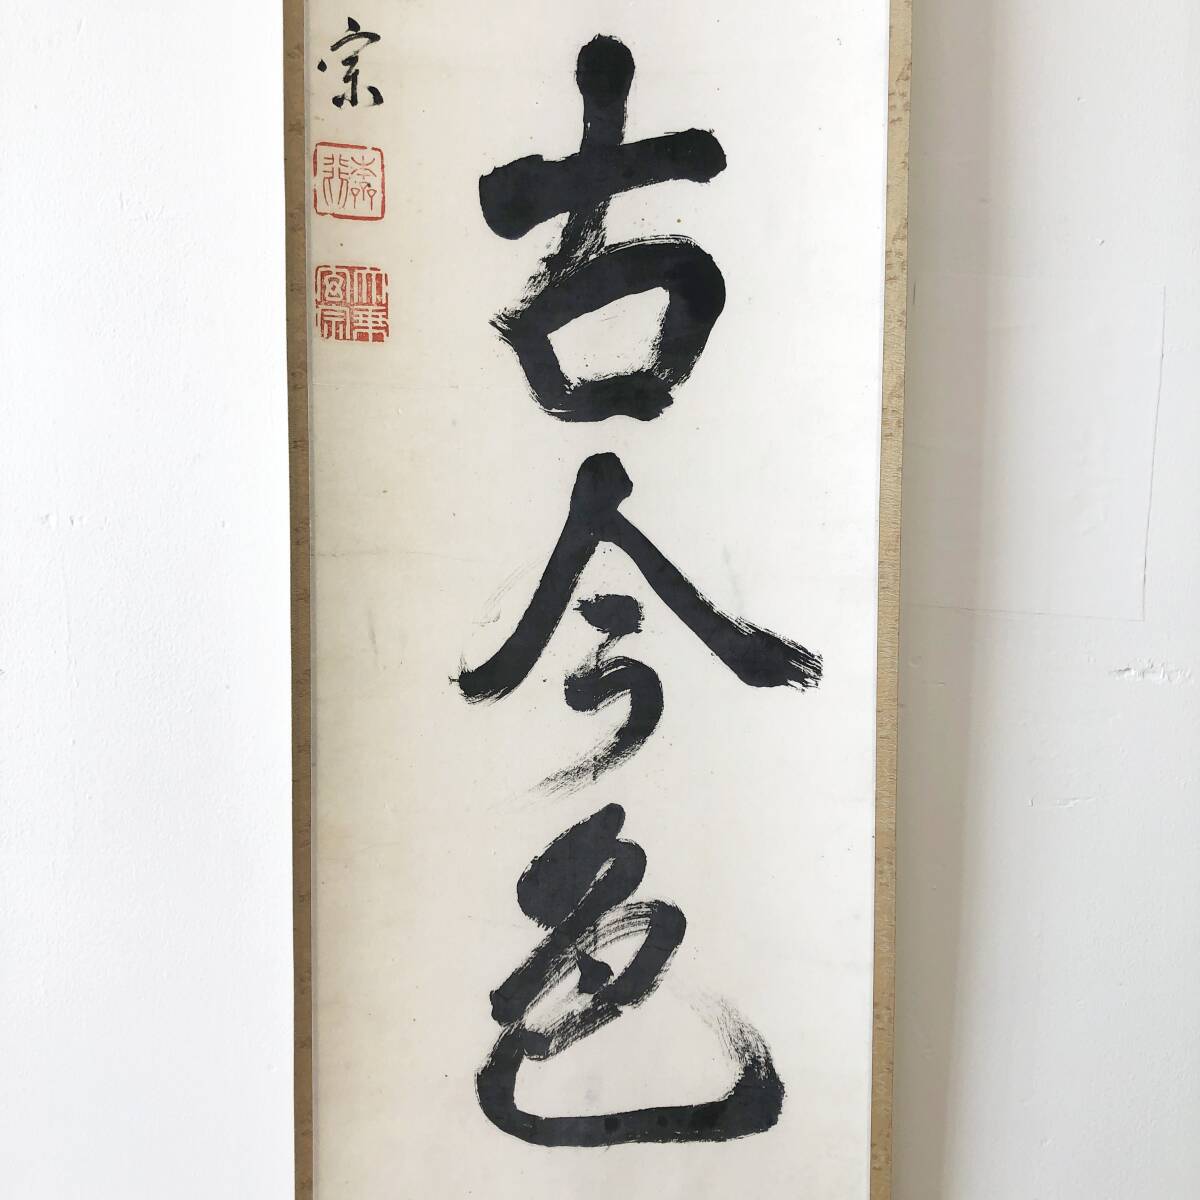 古今色
宗